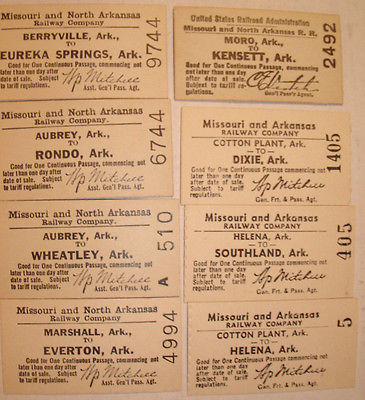 Missouri and North Arkansas
Railway Company
BERRYVILLE, Ark.,
TO
EUREKA SPRINGS, Ark.
Good for One Continuous Passage, commencing not
later than one day after
date of sale. Subject
to tariff regulations.
Wp Mitchell
Asst. Gen'l Pass. Agt.
9744
Missouri and North Arkansas
Railway Company.
AUBREY, Ark.,
TO
RONDO, Ark.
Good for One Continuous Passage, commencing not
later than one day after
date of sale. Subject
to tariff regulations.
Wp Mitchell
Asst. Gen'l Pass. Agt.
6744
Missouri and North Arkansas
Railway Company.
AUBREY, Ark.,
TO
WHEATLEY, Ark.
Good for One Continuous Passage, commencing not
later than one day after
date of sale. Subject
to tariff regulations.
Wp Mitchell
Asst. Gen'l Pass. Agt.
A 510
Missouri and North Arkansas
Railway Company
MARSHALL, Ark.,
TO
EVERTON, Ark.
Good for One Continuous Passage, commencing not
later than one day after
date of sale. Subject
to tariff regulations.
Wp Mitchell
Asst. Gen'l Pass. Agt.
4994
United States Railroad Administration
Missouri and North Arkansas R. R.
MORO, Ark.,
TO
KENSETT, Ark.
Good for One Continuous Passage, commencing
not later than one day
after date of sale. Subject
to tariff regulations.
Gen'l Pass'r Agent.
2492
Missouri and Arkansas
RAILWAY COMPANY
COTTON PLANT, Ark.
TO
DIXIE, Ark.
Good for One Continuous Passage, commencing not
later than one day after
date of sale. Subject
to tariff regulations.
Wp Mitchell
Gen. Frt. & Pass. Agt.
1405
Missouri and Arkansas
RAILWAY COMPANY
HELENA, Ark.
TO
SOUTHLAND, Ark.
Good for One Continuous Passage, commencing not
later than one day after
date of sale. Subject
to tariff regulations.
Wp Mitchell
Gen. Frt. & Pass. Agt.
405
Missouri and Arkansas
RAILWAY COMPANY
COTTON PLANT, Ark.
TO
HELENA, Ark.
Good for One Continuous Passage, commencing not
later than one day after
date of sale. Subject
to tariff regulations.
Wp Mitchell
Gen. Frt. & Pass. Agt.
5